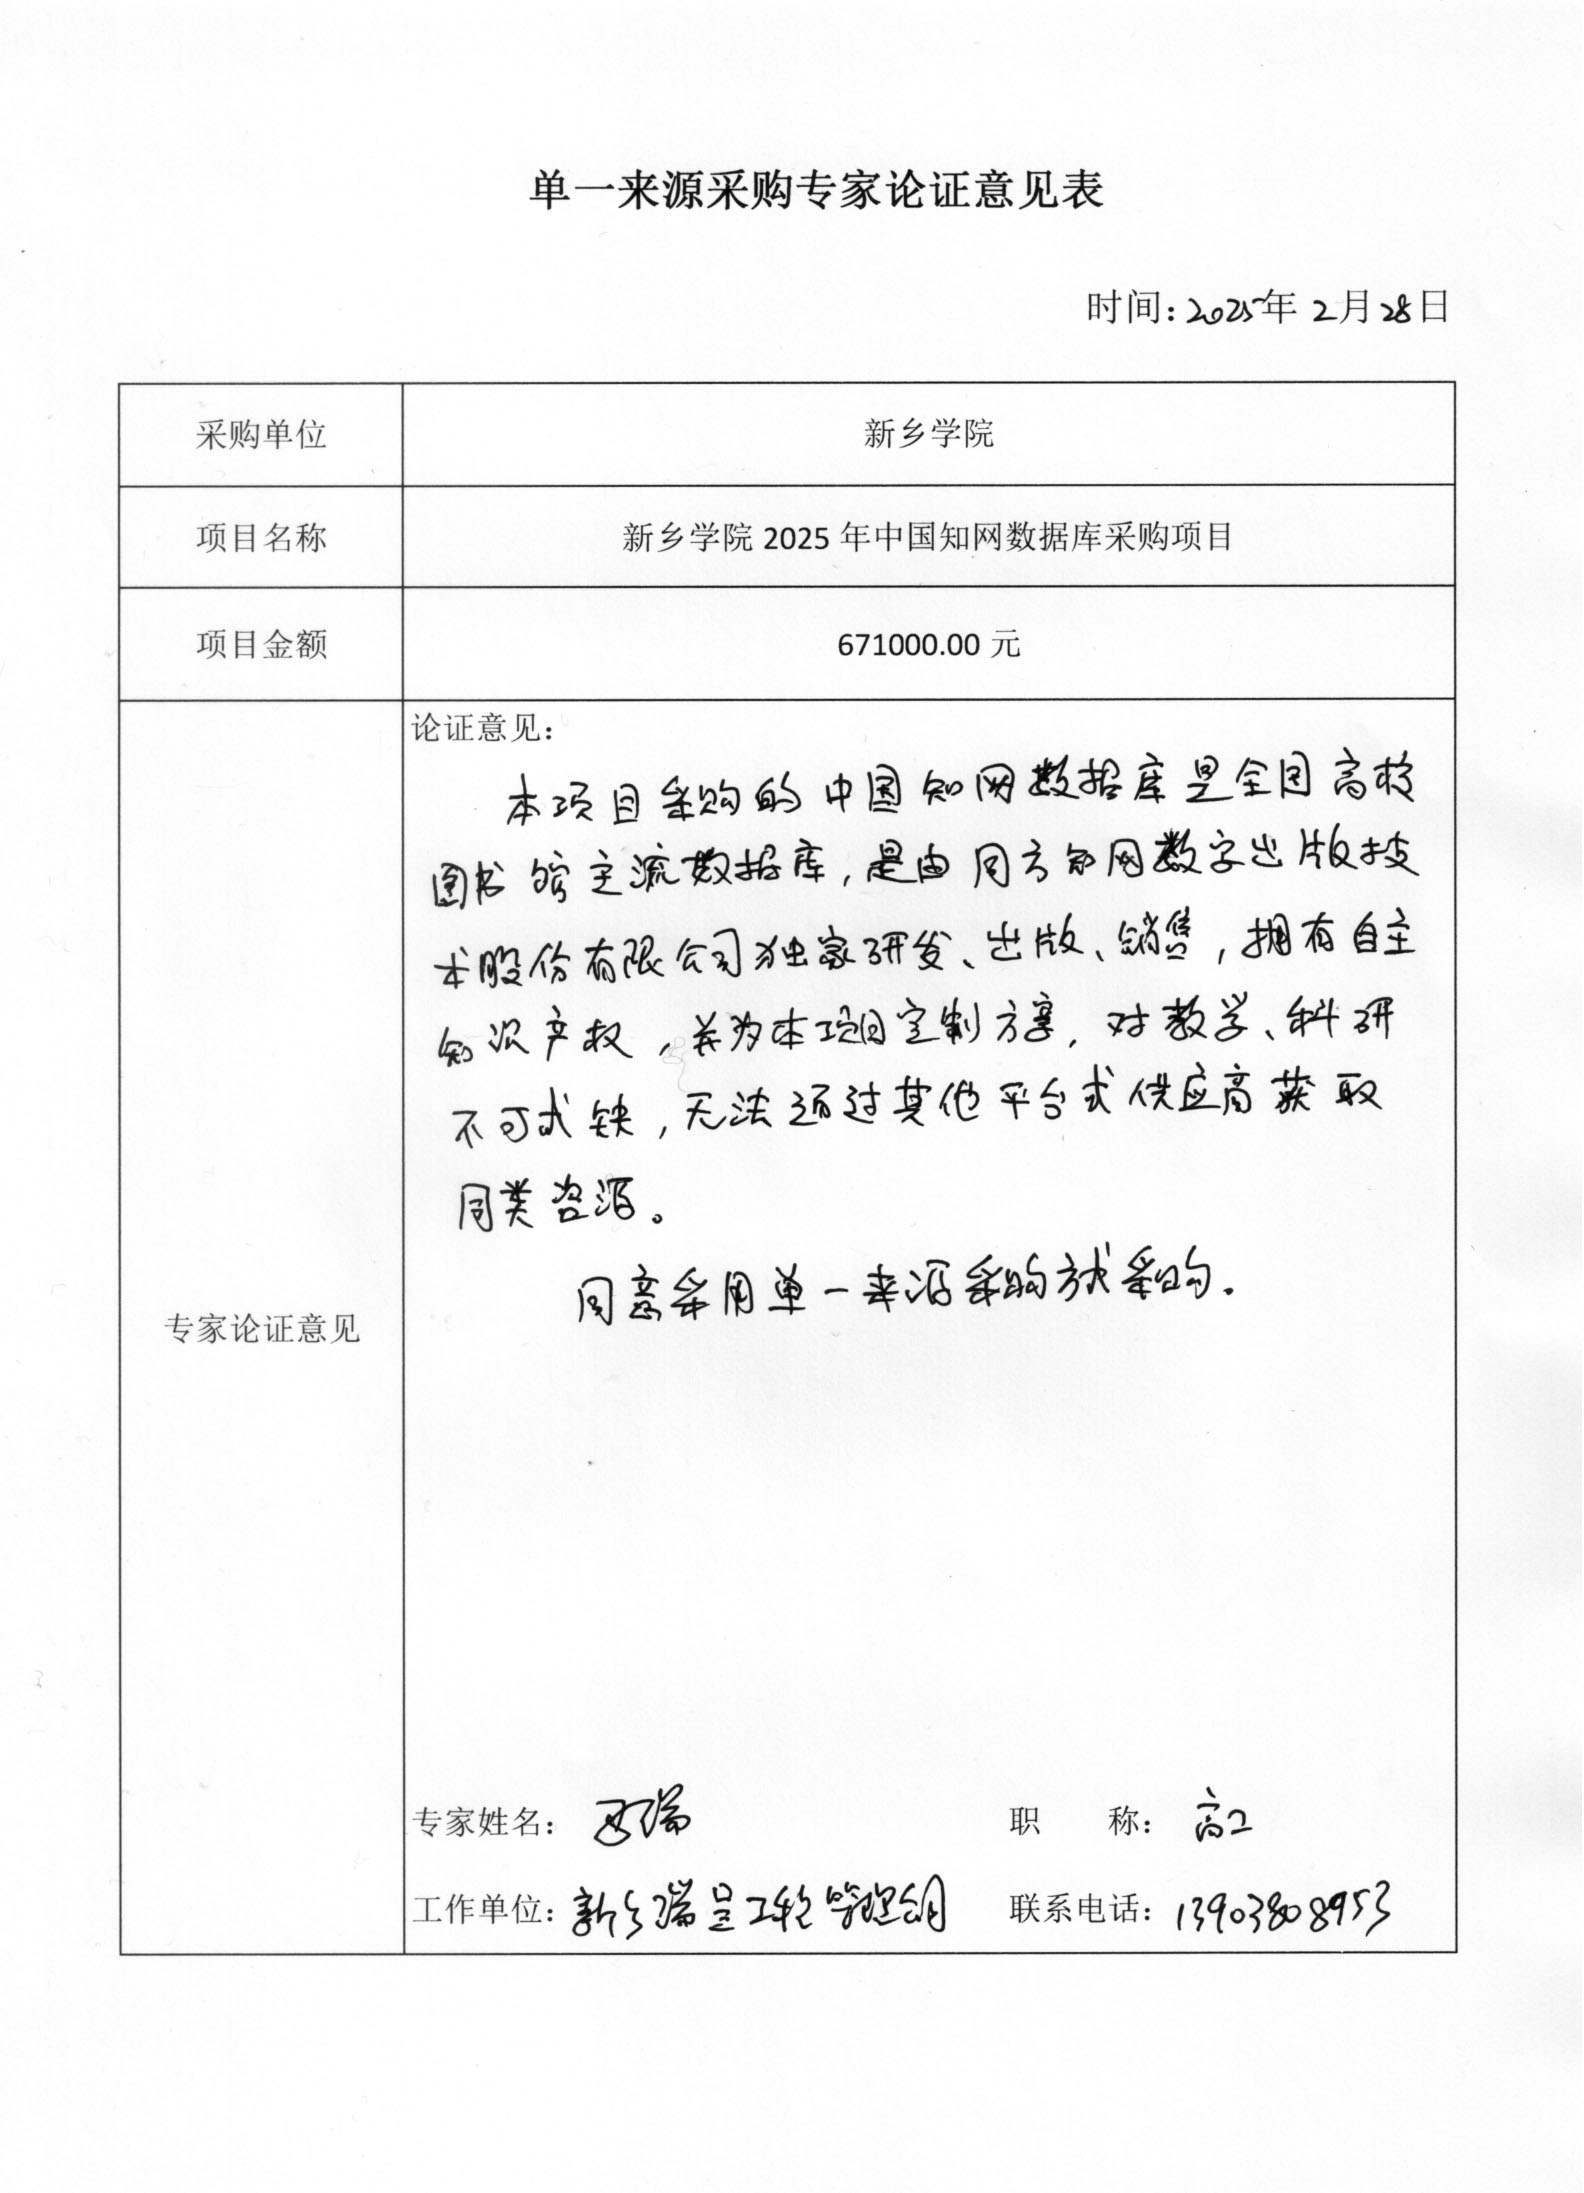 单一来源采购专家论证意见表
时间：2025年2月28日
采购单位 新乡学院
项目名称 新乡学院2025年中国知网数据库采购项目
项目金额 671000.00元
专家论证意见
论证意见：
本项目采购的中国知网数据库是全国高校
图书馆主流数据库，是由同方知网数字出版技
术股份有限公司独家研发、出版、销售，拥有自主
知识产权，并为本项目定制方案，对教学、科研
不可或缺，无法通过其他平台或供应商获取
同类资源。
同意采用单一来源采购方式采购。
专家姓名： 瑞 职 称：高工
工作单位：新乡瑞呈工程管理 联系电话：13903808953